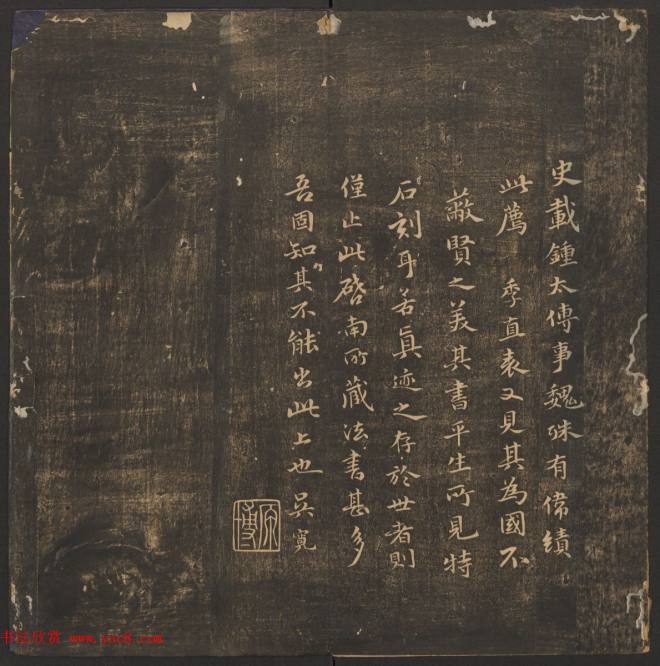 史載鍾太傅事魏殊有偉績
此薦季直表又見其為國不
蔽賢之美其書平生所見特
石刻耳若真迹之存於世者則
僅止此啓南所藏法書甚多
吾固知其不能出此上也吳寬
原博
书法欣赏 www.yac8.com